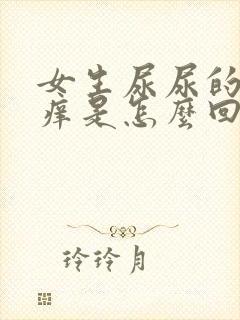 女生尿尿的
痒是怎麼回
玲玲月